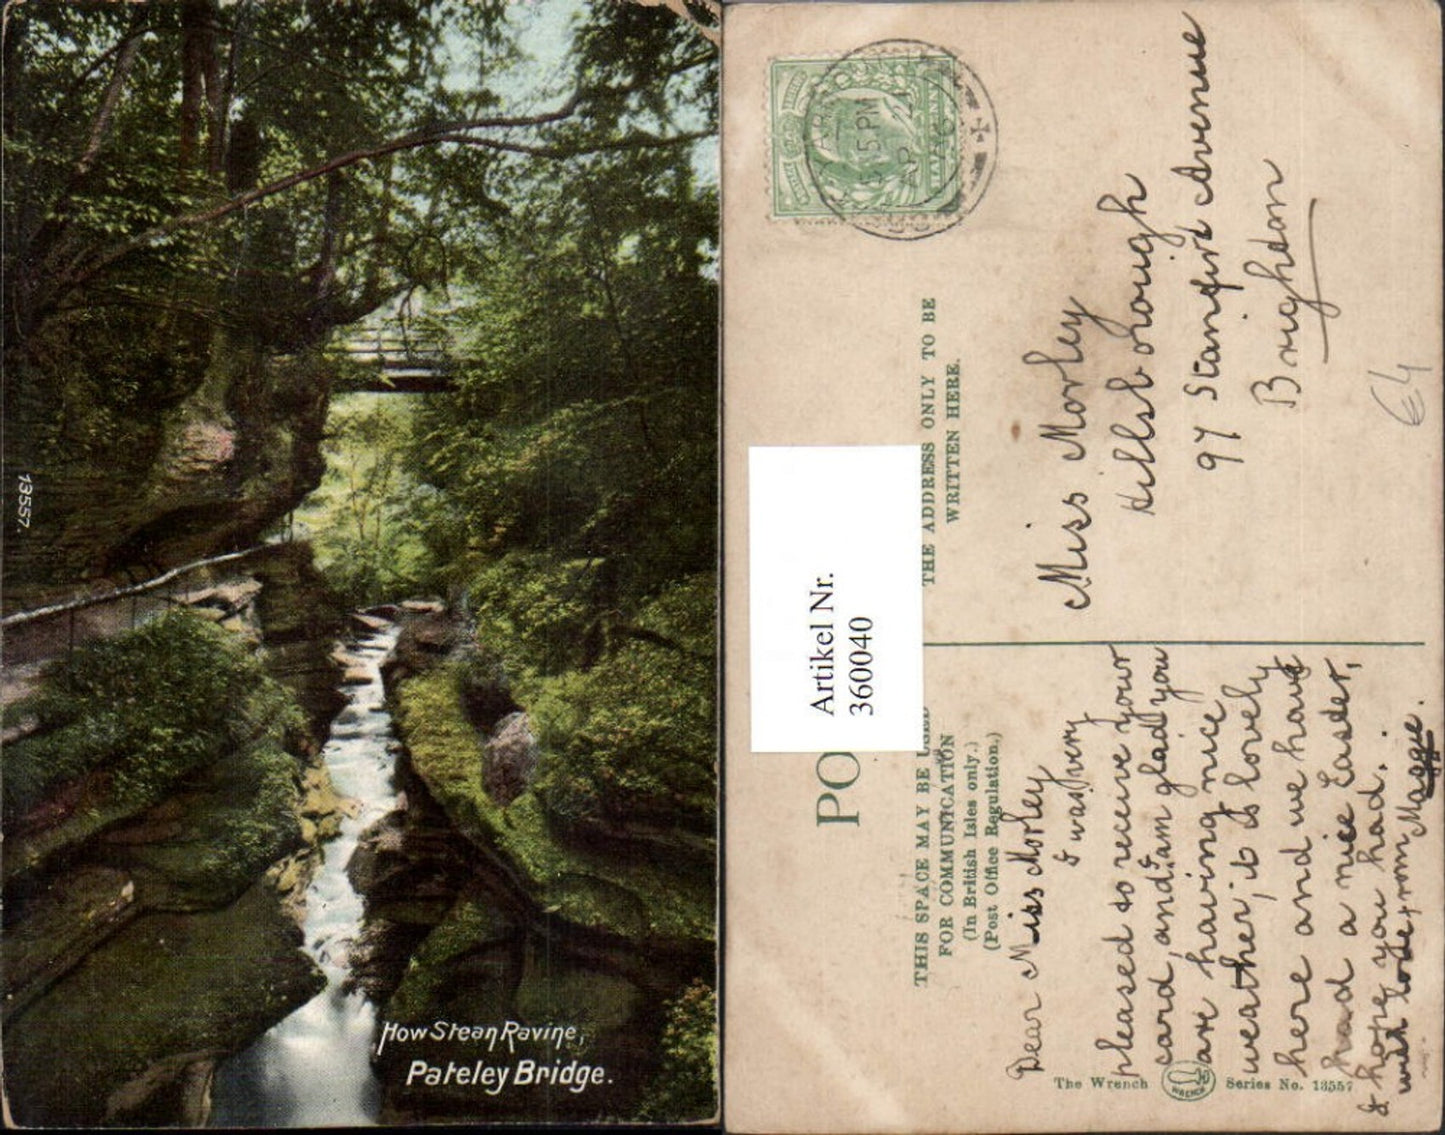 13557.
How Stean Ravine,
Pateley Bridge.
5.15 PM
AP 2
Artikel Nr.
360040
PO
THE ADDRESS ONLY TO BE
WRITTEN HERE.
THIS SPACE MAY BE USED
FOR COMMUNICATION
(In British Isles only.)
(Post Office Regulation.)
Miss Morley
Hillsborough
97 Stanford Avenue
Brighton
€4
Dear Miss Morley
I was very
pleased to receive your
card, and I am glad you
are having nice
weather, it is lovely
here and we have
had a nice Easter,
I hope you had.
with love from Maggie.
The Wrench
WRENCH
Series No. 13557